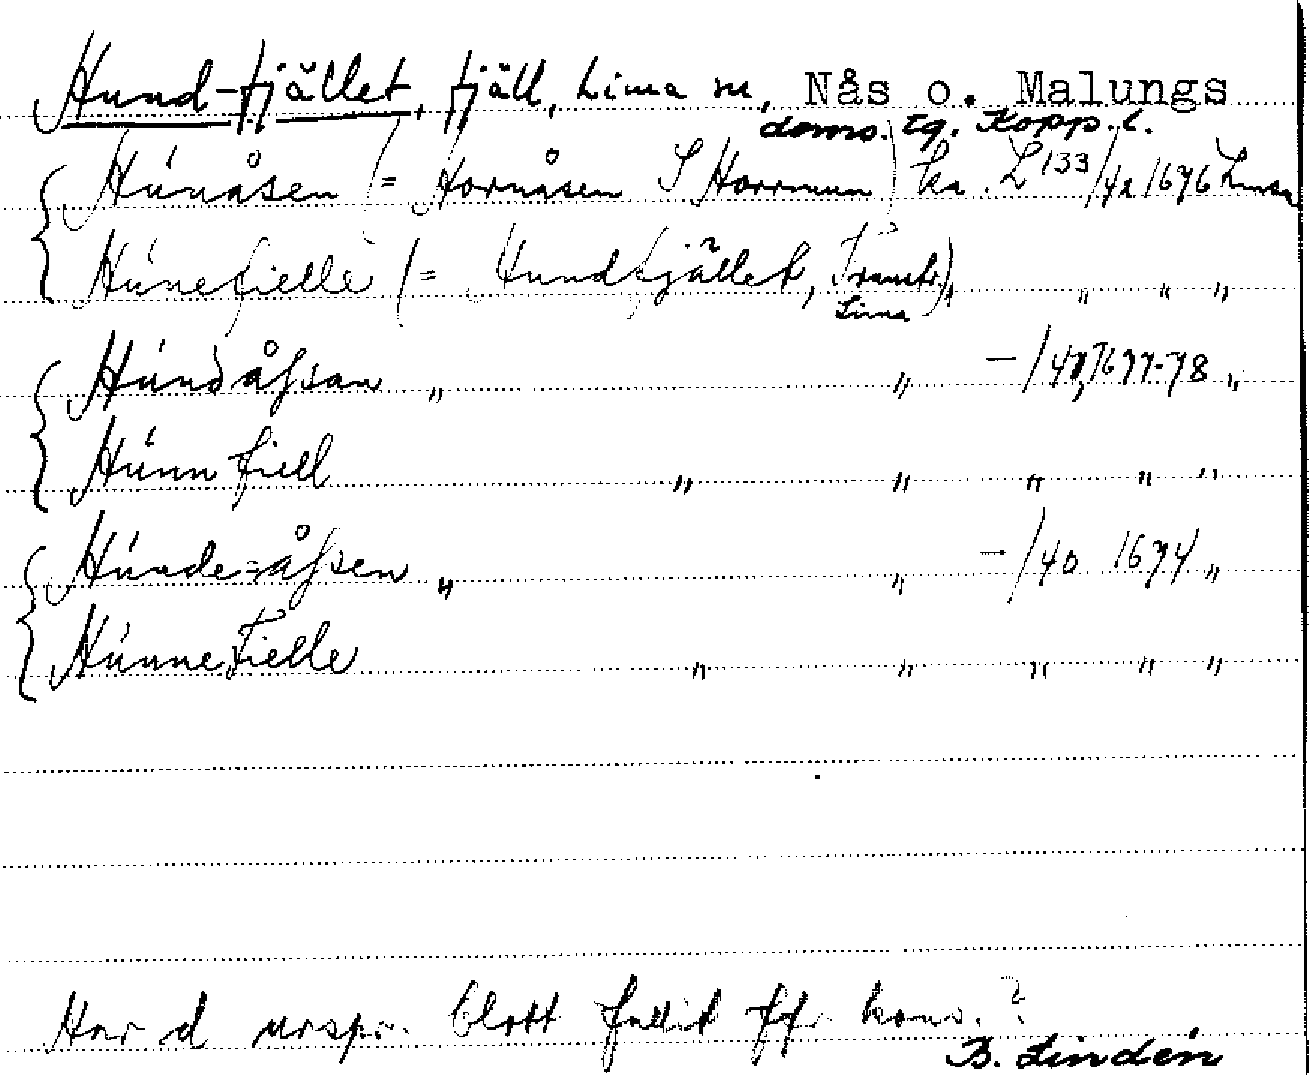 Hund-fjället, fjäll, Lima sn, Nås o. Malungs
doms. tg. Kopp. l.
Húnåsen (= Hornåsen S Horrmun) ka. L 133/42 1676 Lima
Húnefielle (= Hundfjället, Transtr.), " " "
Lima
Húndåssan " " -/47, 1677-78 "
Húnn fiell " " " " "
Húnde=åssen " " -/40 1674 "
Húnne Fielle " " " " "
Har d urspr. blott fallit ff kons.?
B. Lindén